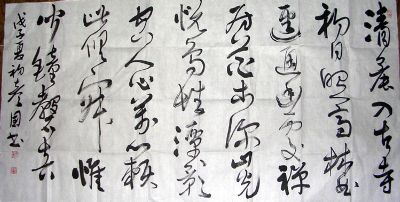 清晨入古寺
初日照高林曲
逕通幽處禪
房花木深山光
悦鳥性潭影
空人心萬籟
此俱寂惟
鐘磬音
戊子夏初彦国书